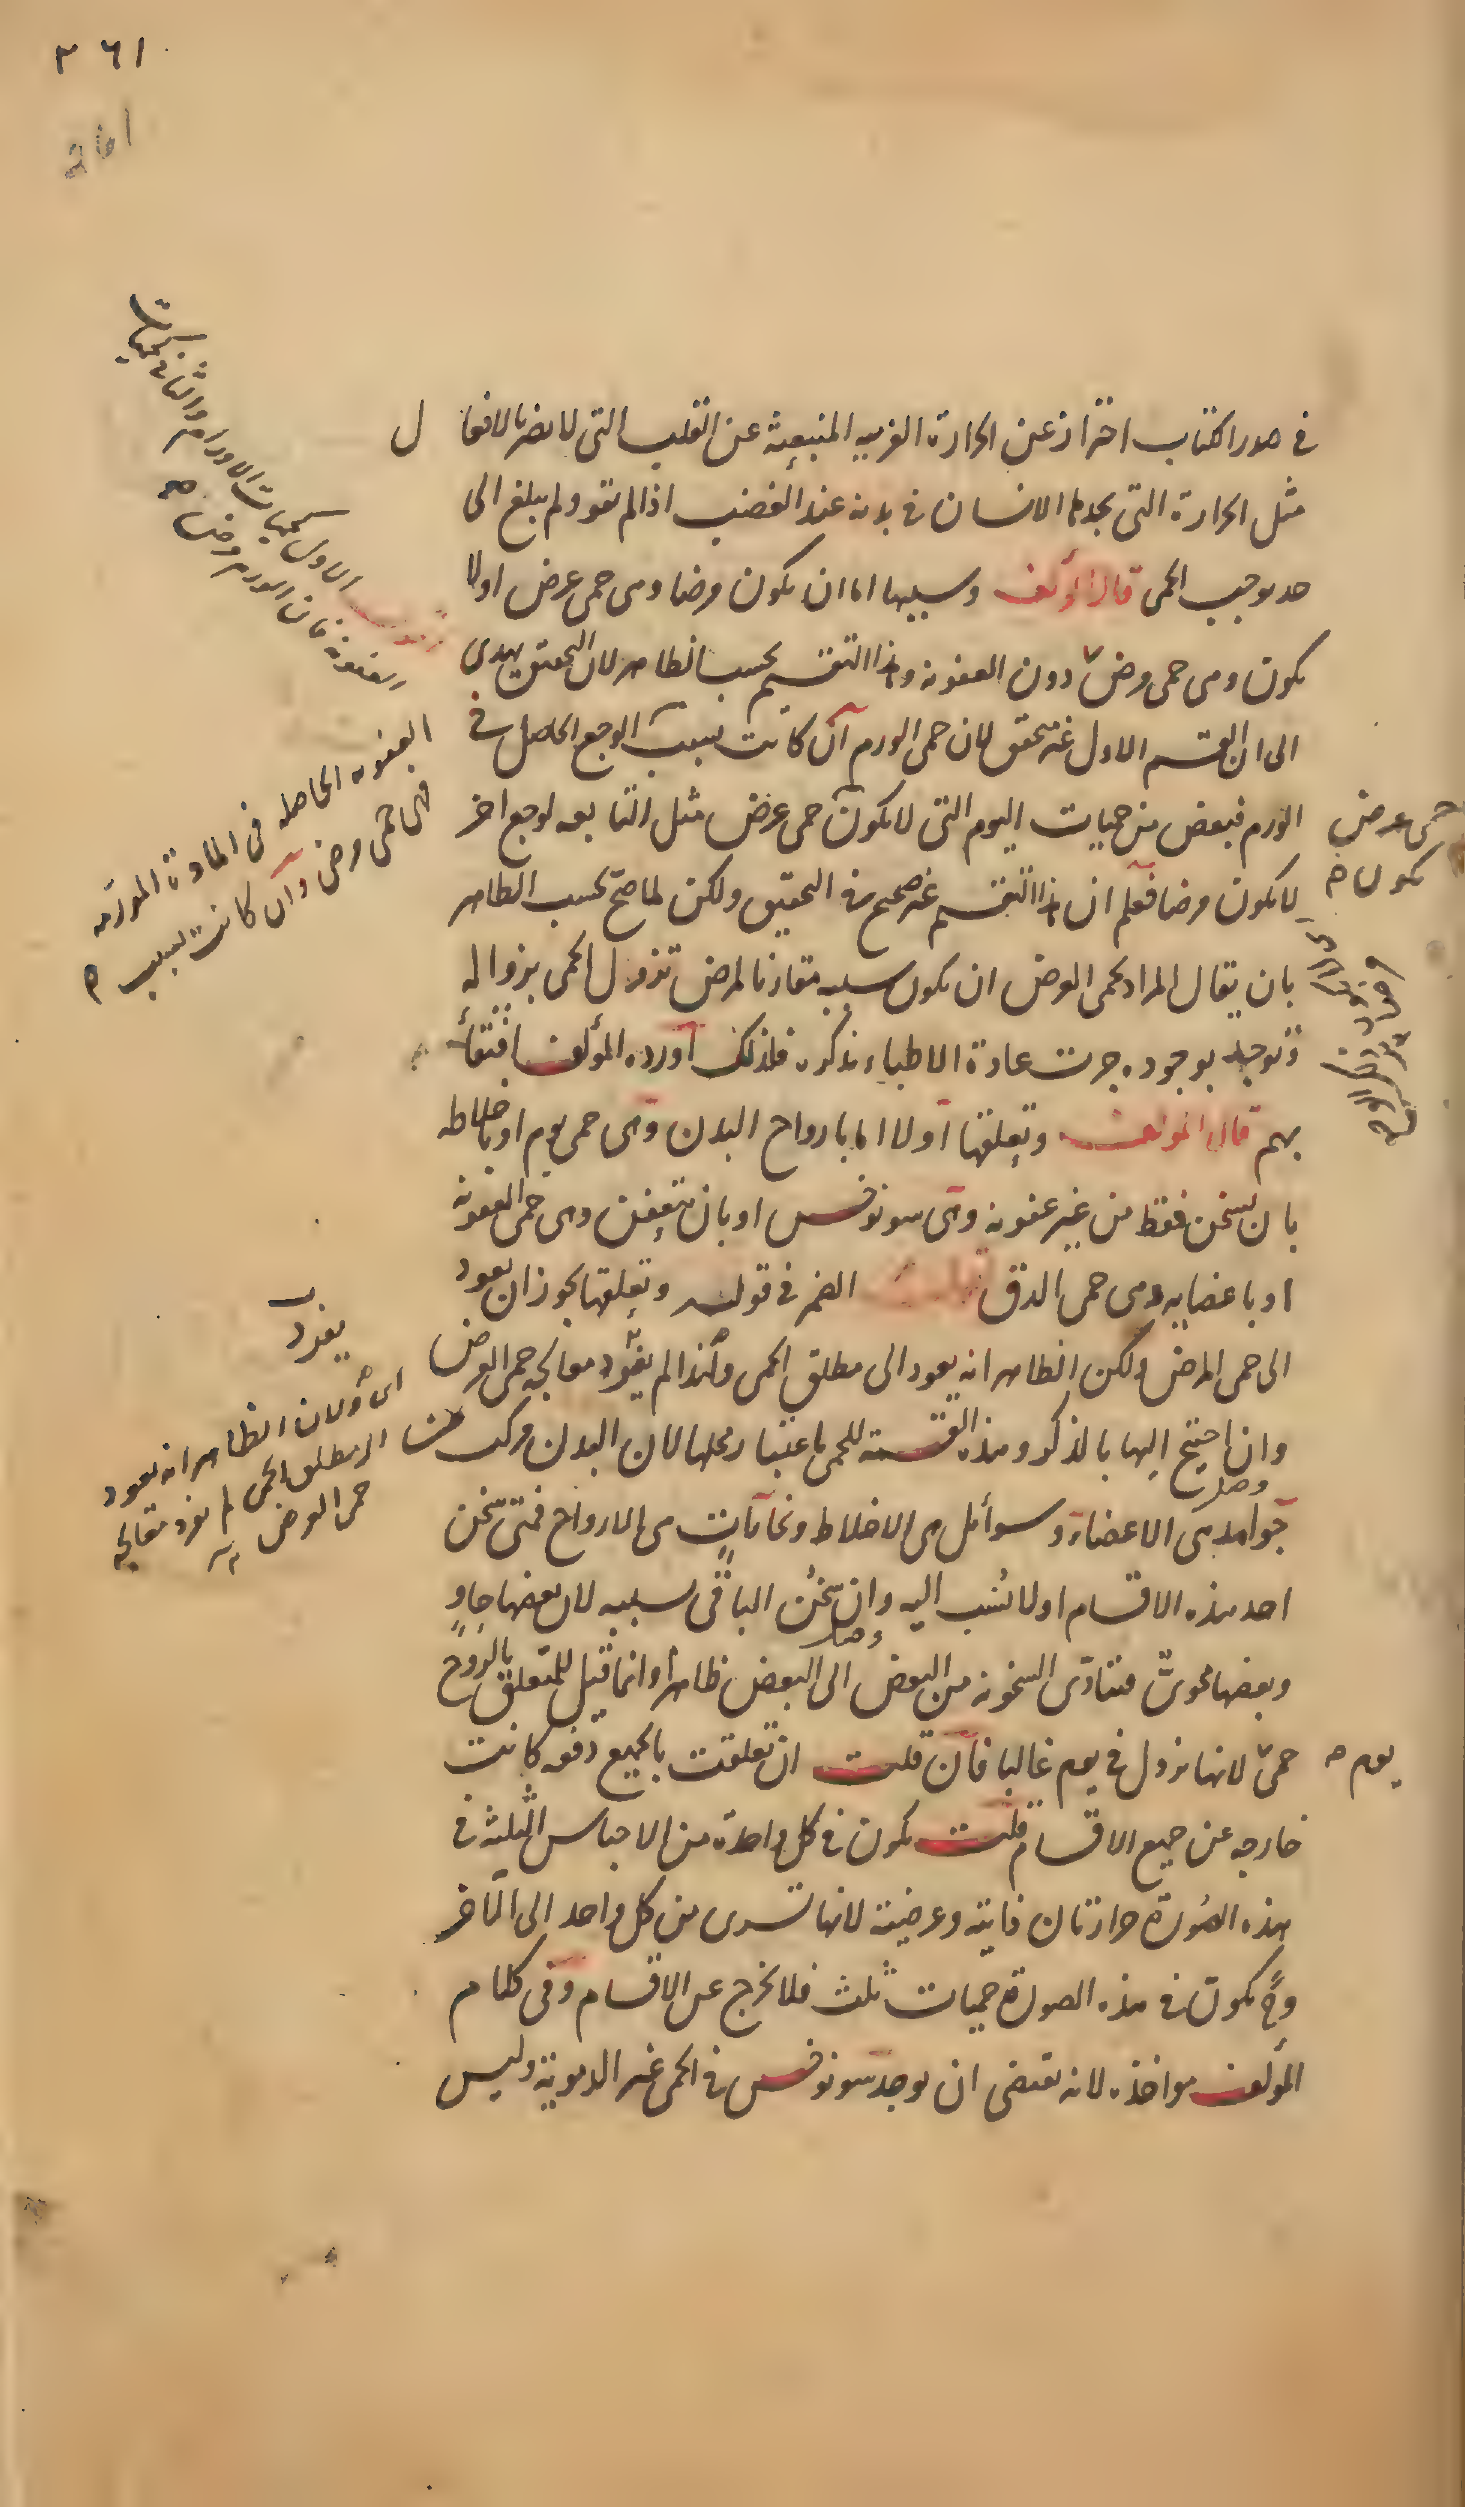 ٢٦١
في صدر الكتاب احتراز عن الحرارة الغريبه المنبعثة عن القلب التي لا يضر بالافعا ل
مثل الحرارة التي يجدها الانسان في بدنه عند الغضب اذا لم تقو ولم يبلغ الى
حد يوجب الحمى قال المؤلف وسببها اما ان يكون مرضا وهي حمى عرض او لا
يكون وهي حمى مرض دون العفونه وهذا التقسيم بحسب الظاهر لان التحقيق يهدى
الى ان القسم الاول غير متحقق لان حمى الورم ان كانت بسبب الوجع الحاصل في
الورم فبعض من حميات اليوم التي لا يكون حمى عرض مثل التابعه لوجع اخر
لا يكون مرضا فعلم ان هذا التقسيم غير صحيح في التحقيق ولكن لما صح بحسب الظاهر
بان يقال المراد بحمى العرض ان يكون سببه مقارنا لمرض تزول الحمى بزواله
وتوجد بوجوده جرت عادة الاطباء بذكره فلذلك اورده المؤلف اقتفاء
بهم قال المؤلف وتعلقها اولا اما بارواح البدن وهي حمى يوم او باخلاطه
بان يسخن فقط من غير عفونه وهي سونوخس او بان تتعفن وهي حمى العفونة
او باعضايه وهي حمى الدق اقول الضمير في قوله وتعلقها يجوز ان يعود
الى حمى المرض ولكن الظاهر انه يعود الى مطلق الحمى ولهذا لم يفرد معالجه حمى العرض
وان احتيج اليها بالذكر وهذه القسمة للحمى باعتبار محلها لان البدن مركب من
جوامد هي الاعضاء وسوائل هي الاخلاط وبخارات هي الارواح فمتى تسخن
احد هذه الاقسام اولا نسب اليه وان تسخن الباقي بسببه لان بعضها حاو
وبعضها محوى فتتادى السخونه من البعض الى البعض ظاهرا وانما قيل للمتعلق بالروح
حمى لانها تزول في يوم غالبا فان قلت ان تعلقت بالجميع دفعه كانت
خارجه عن جميع الاقسام قلت يكون في كل واحدة من الاجناس الثلثة في
هذه الصورة حرارتان ذاتية وعرضية لانها تسرى من كل واحد الى الاخر
وح يكون في هذه الصورة حميات ثلث فلا يخرج عن الاقسام وفي كلام
المؤلف مواخذه لانه يقتضى ان يوجد سونوخس في الحمى غير الدموية وليس
الاول كحميات الاورام والثاني كحميات
العفونة فان الورم مرض
العفونه الحاصله في المادة المورمه
فهى حمى مرض وان كانت بسبب
حمى عرض
يكون
يفرد
اى ولان الظاهر انه يعود
الى مطلق الحمى لم يفرد معالجه
حمى العرض
يوم